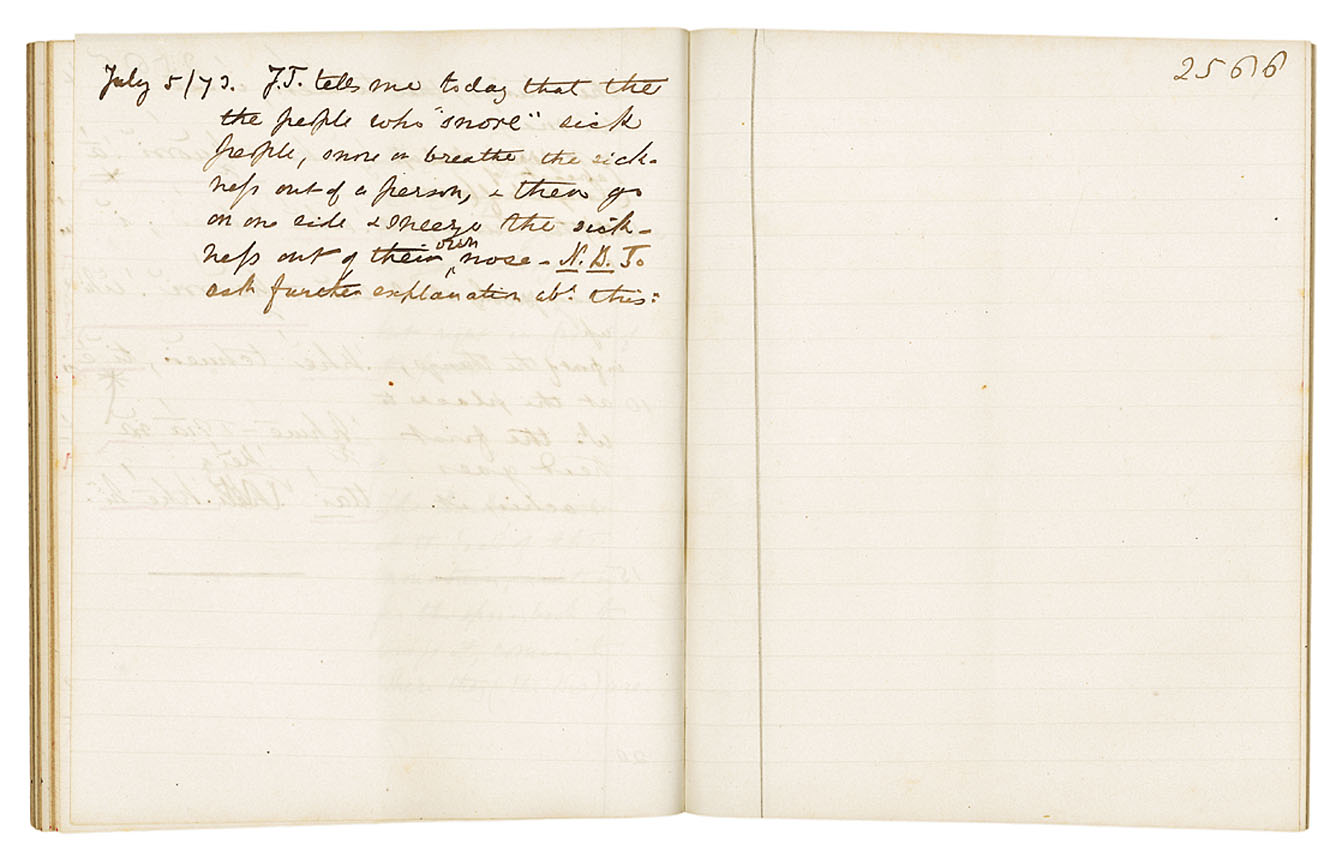 July 5/73. J.T. tells me today that the
the people who "snore" sick
people, snore or breathe the sick-
ness out of a person, & then go
on one side & sneeze the sick-
ness out of their own nose - N.B. To
ask further explanation abt. this:
2566